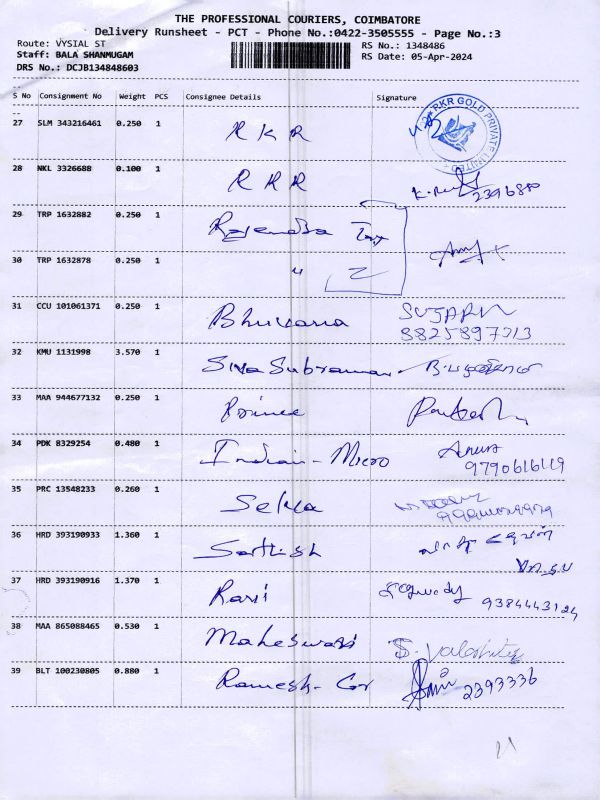 THE PROFESSIONAL COURIERS, COIMBATORE
Delivery Runsheet - PCT - Phone No.:0422-3505555 - Page No.:3
Route: VYSIAL ST
RS No.: 1348486
Staff: BALA SHANMUGAM
RS Date: 05-Apr-2024
DRS No.: DCJB134848603
S No Consignment No Weight PCS Consignee Details Signature
27 SLM 343216461 0.250 1 R K R
RKR GOLD PRIVATE LIMITED
28 NKL 3326688 0.100 1 R R R
29 TRP 1632882 0.250 1 Rajendra Tex
30 TRP 1632878 0.250 1 " 2
31 CCU 101061371 0.250 1 Bhuvana
32 KMU 1131998 3.570 1 Siva Subraman
33 MAA 944677132 0.250 1 Prince
34 PDK 8329254 0.480 1 Indian - Micro
9790616119
35 PRC 13548233 0.260 1 Selva
36 HRD 393190933 1.360 1 Sathish
37 HRD 393190916 1.370 1 Ravi
9384443124
38 MAA 865088465 0.530 1 Maheswari
39 BLT 100230805 0.880 1 Ramesh - Cor
2393336